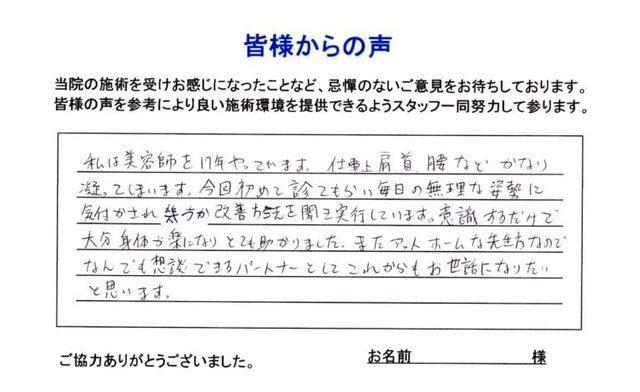 皆様からの声
当院の施術を受けお感じになったことなど、忌憚のないご意見をお待ちしております。
皆様の声を参考により良い施術環境を提供できるようスタッフ一同努力して参ります。
私は美容師を17年やっています。仕事上肩首腰などかなり
凝ってしまいます。今回初めて診てもらい毎日の無理な姿勢に
気付かされ幾つか改善方法を聞き実行しています。意識するだけで
大分身体が楽になりとても助かりました。またアットホームな先生方なので
なんでも想談できるパートナーとしてこれからもお世話になりたい
と思います。
ご協力ありがとうございました。
お名前 様